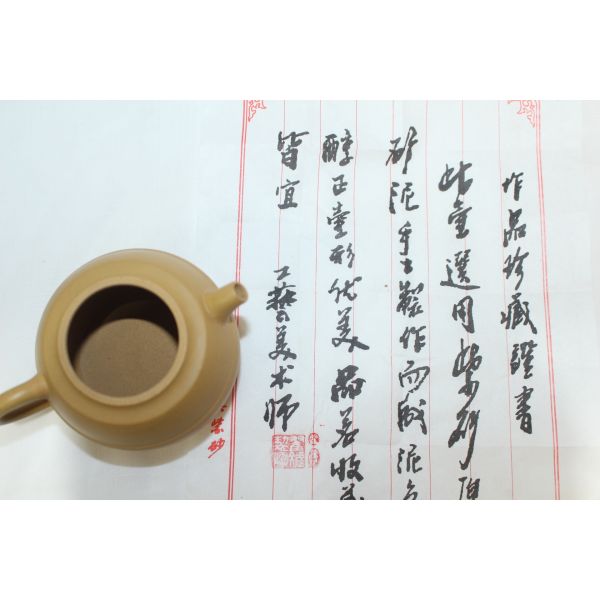 作品珍藏證書
此壶選用紫砂
砂泥手工製作而成泥色
醇正壶形优美品茗收
皆宜
工藝美术師
紫砂